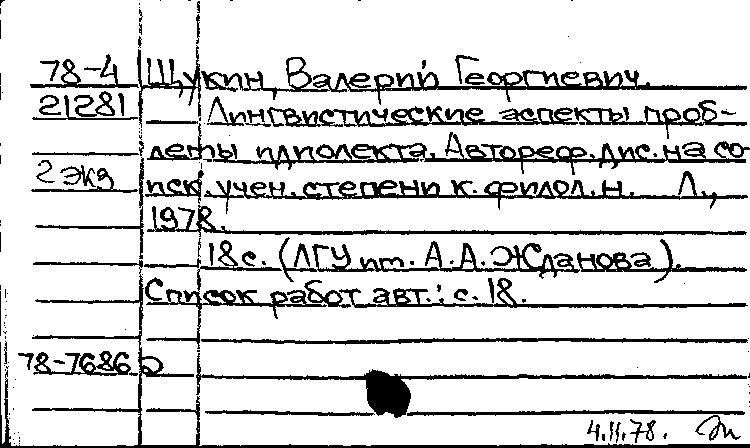 78-4 Щукин, Валерий Георгиевич.
21281 Лингвистические аспекты проб-
лемы идиолекта. Автореф. дис. на со-
2 экз иск. учен. степени к. филол. н. Л.,
1978.
18 с. (ЛГУ им. А. А. Жданова).
Список работ авт.: с. 18.
78-7686
4.11.78.